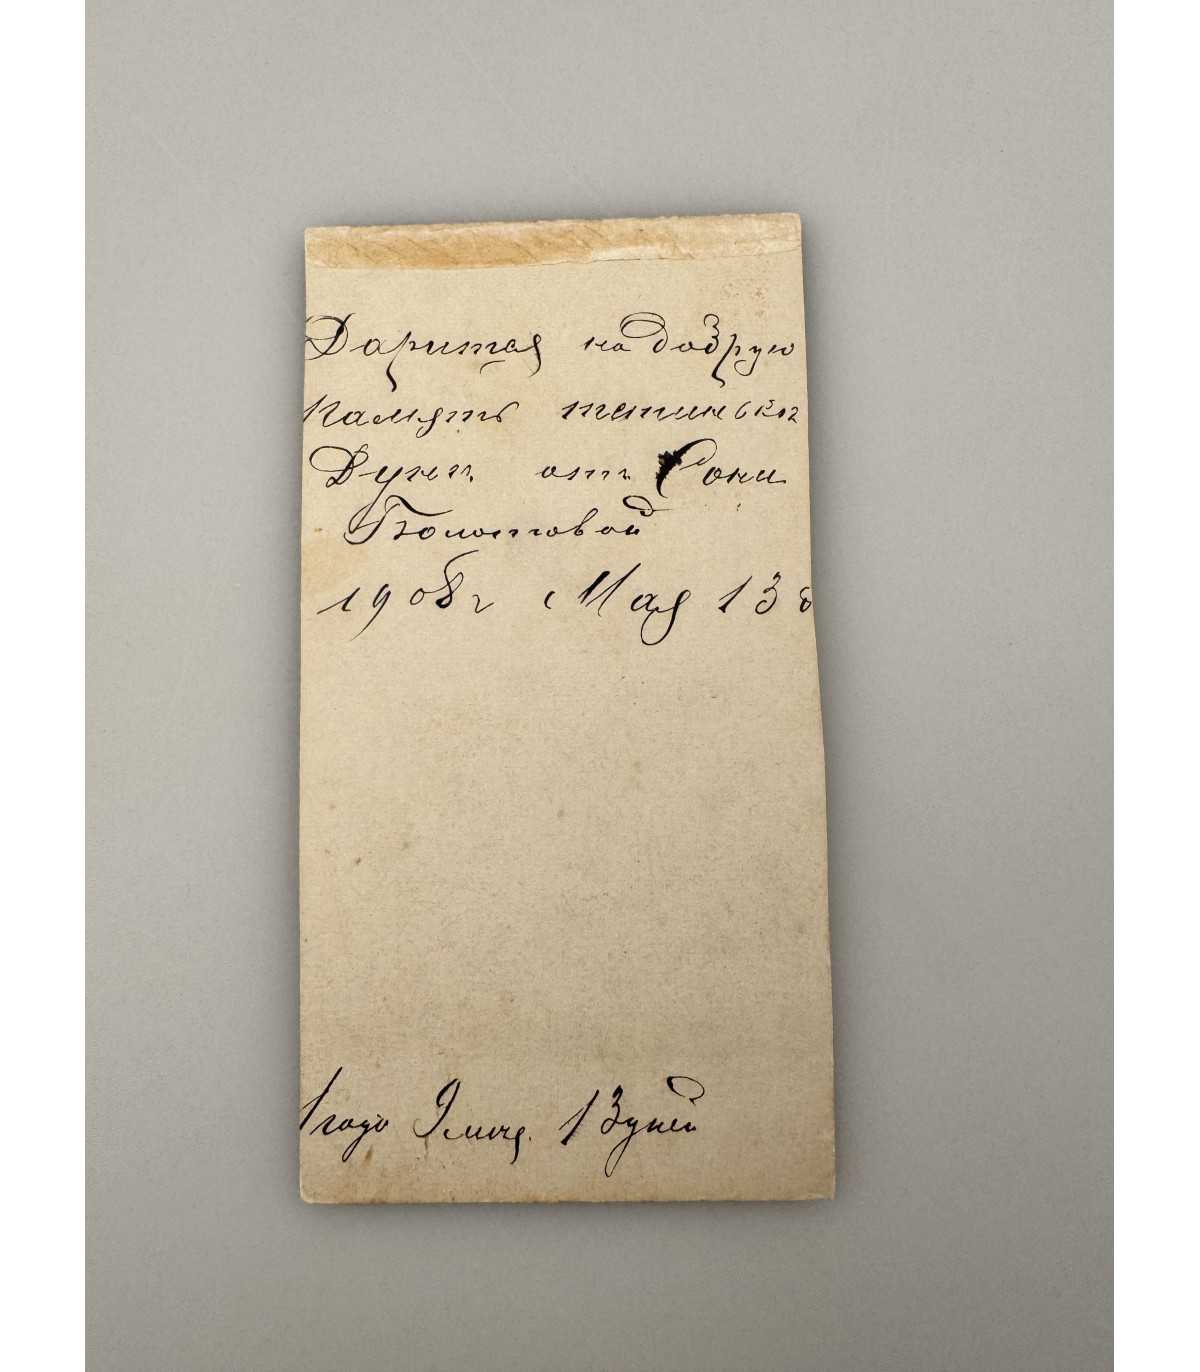 Дарится на добрую
память тетиньки
Дуни от Сони
Болотовой
1908 г Мая 13 д
1 годъ 9 меся. 13 дней